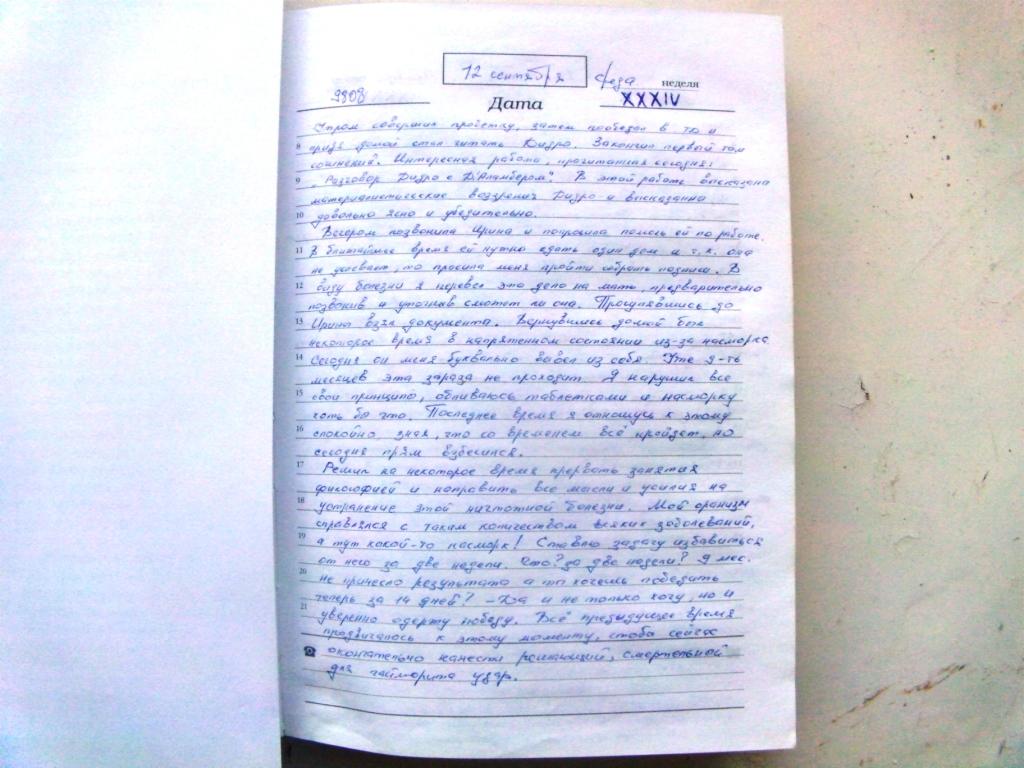 12 сентября среда неделя
9808 Дата XXXIV
Утром совершил пробежку, затем пообедал в то и
8 придя домой стал читать Дидро. Закончил первый том
сочинений. Интересная работа, прочитанная сегодня:
9 „Разговор Дидро с Д'Аламбером". В этой работе высказана
материалистические воззрения Дидро и высказанна
10 довольно ясно и убедительно.
Вечером позвонила Ирина и попросила помочь ей по работе.
11 В ближайшее время ей нужно сдать один дом и т.к. она
не успевает, то просила меня пройти собрать подписи. В
12 виду болезни я перевёл это дело на мать, предварительно
позвонив и уточнив сможет ли она. Прогулявшись до
13 Ирины взял документа. Вернувшись домой был
некоторое время в напряженном состоянии из-за насморка.
14 Сегодня он меня буквально вывел из себя. Уже 9-ть
месяцев эта зараза не проходит. Я нарушил все
15 свои принципы, обпиваюсь таблетками и насморку
хоть бы что. Последнее время я отношусь к этому
16 спокойно, зная, что со временем всё пройдет, но
сегодня прям взбесился.
17 Решил на некоторое время прервать занятия
философией и направить все мысли и усилия на
18 устранение этой ничтожной болезни. Мой организм
справлялся с таким количеством всяких заболеваний,
19 а тут какой-то насморк! Ставлю задачу избавиться
от него за две недели. Что? за две недели? 9 мес.
20 не принесло результата а ты хочешь победить
теперь за 14 дней? - Да и не только хочу, но и
21 уверенно одержу победу. Всё предыдущее время
продвигалось к этому моменту, чтоба сейчас
окончательно нанести решающий, смертельной
для гайморита удар.